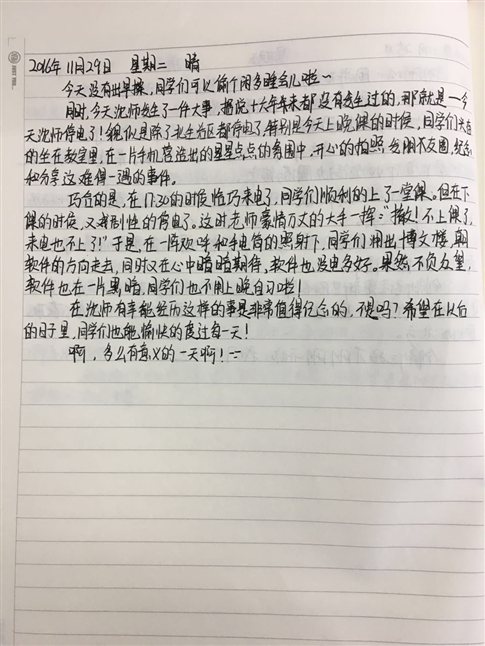 2016年11月29日 星期二 晴
今天没有出早操，同学们可以偷个闲多睡会儿啦～
同时，今天沈师发生了一件大事，据说十六年来都没有发生过的，那就是一今
天沈师停电了！貌似是除了北生活区都停电了，特别是今天上晚课的时候，同学们大眼
的坐在教室里，在一片手机营造出的星星点点的氛围中，开心的拍照发朋友圈，纪念
和分享这难得一遇的事件。
巧合的是，在17:30的时候恰巧来电了，同学们顺利的上了一堂课。但在下
课的时候，又戏剧性的停电了。这时老师豪情万丈的大手一挥：“撤！不上课了，
来电也不上了！”于是，在一阵欢呼和手电筒的照射下，同学们相出博文楼，朝
软件的方向走去，同时又在心中暗暗期待，软件也没电多好。果然不负众望，
软件也在一片黑暗，同学们也不用上晚自习啦！
在沈师有幸能经历这样的事是非常值得纪念的，不是吗？希望在以后
的日子里，同学们也能愉快的度过每一天！
啊，多么有意义的一天啊！